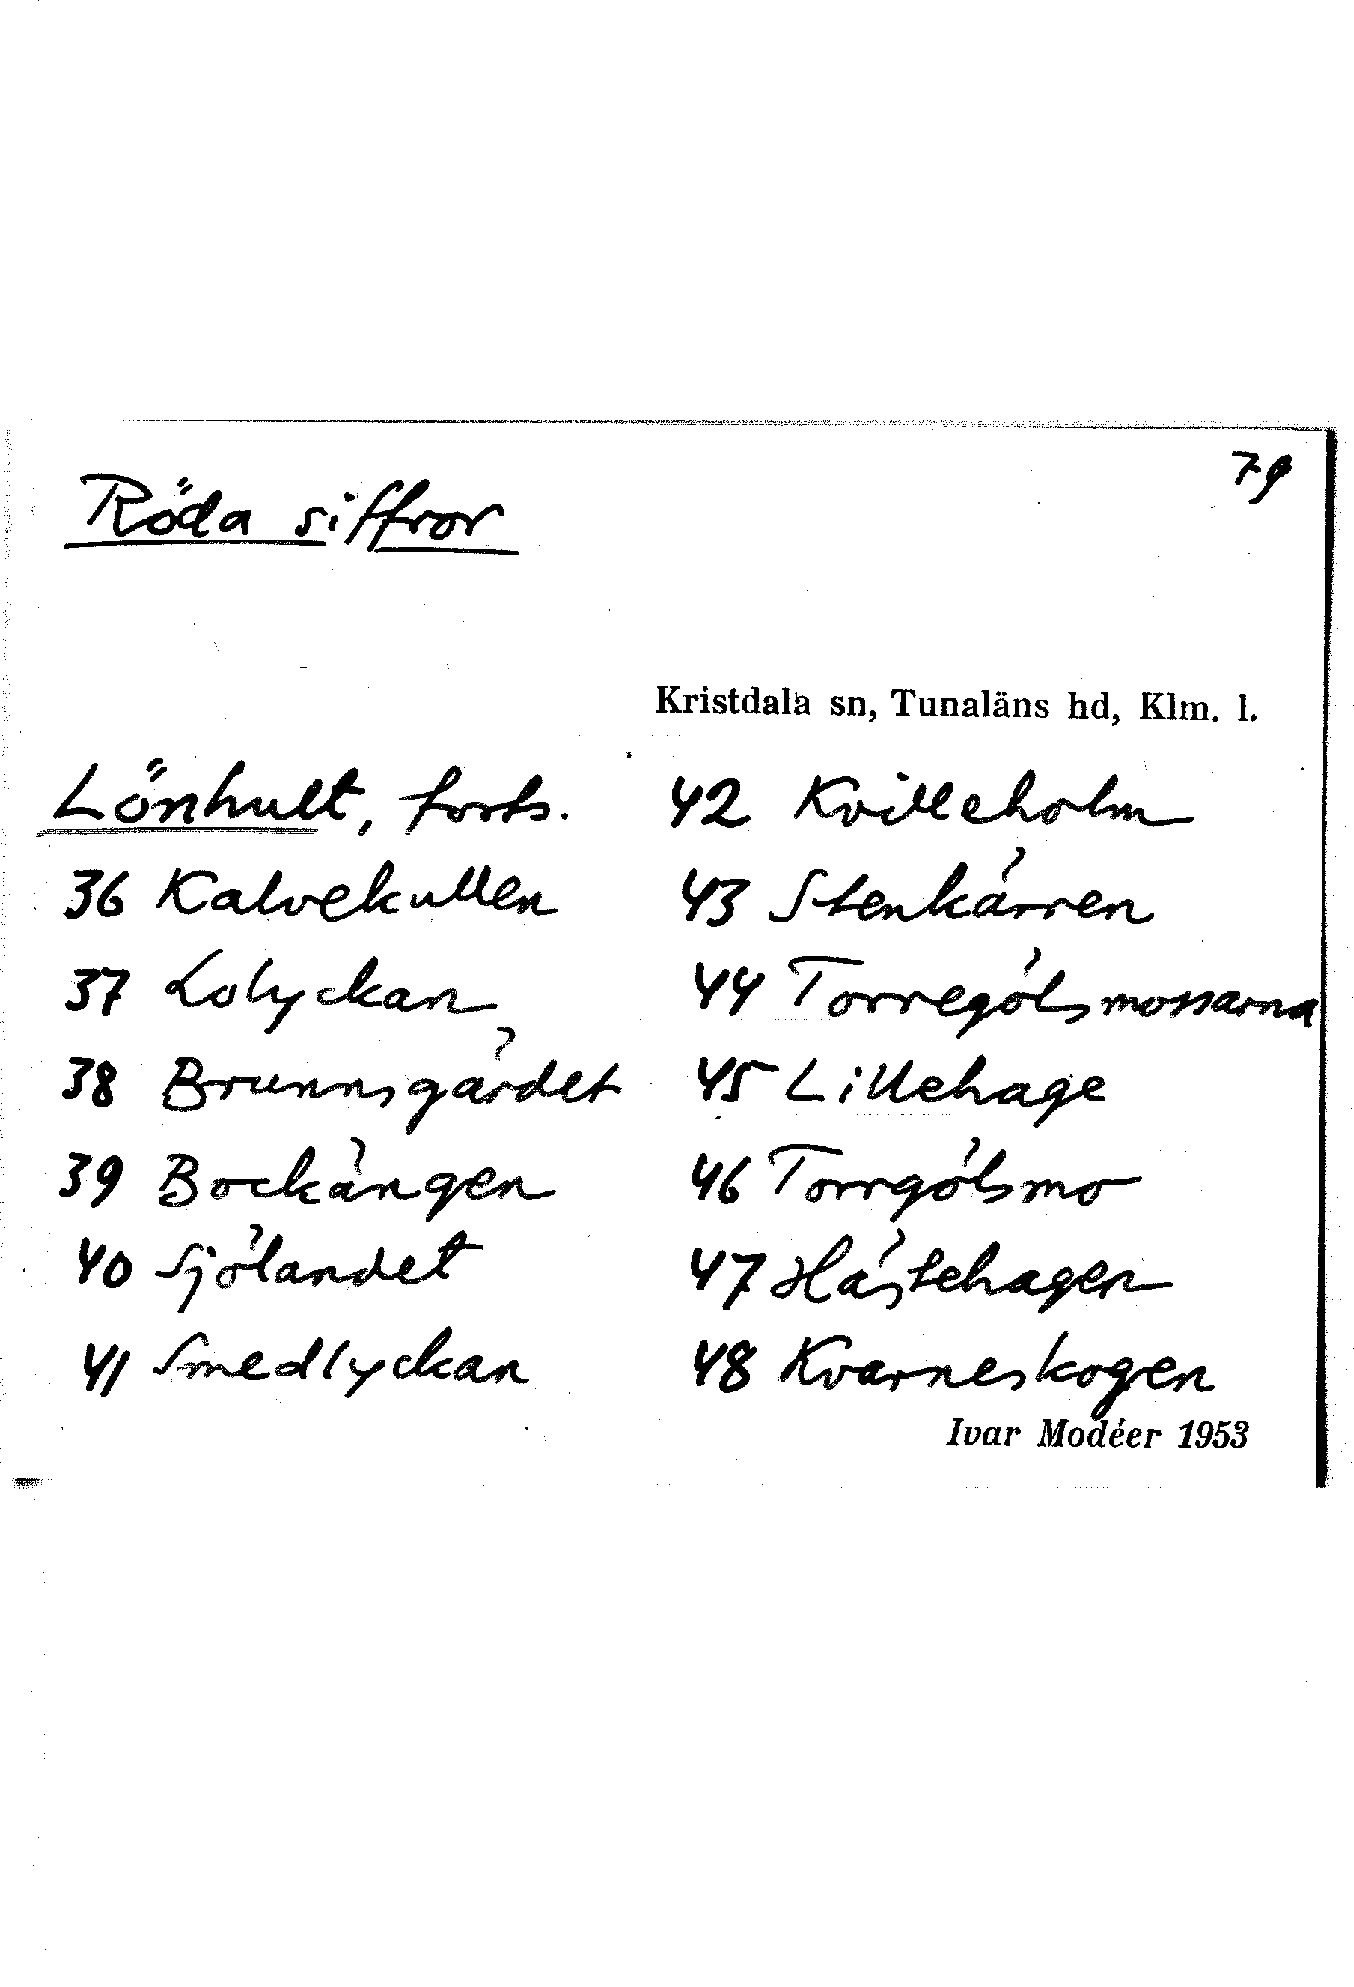 79
Röda siffror
Kristdala sn, Tunaläns hd, Klm. l.
Lönhult, forts.
36 Kalvekullen
37 Lolyckan
38 Brunnsgärdet
39 Bockängen
40 Sjölandet
41 Smedlyckan
42 Kvilleholm
43 Stenkärren
44 Torregölsmossarna
45 Lillehage
46 Torrgölsmo
47 Hästehagen
48 Kvarneskogen
Ivar Modéer 1953